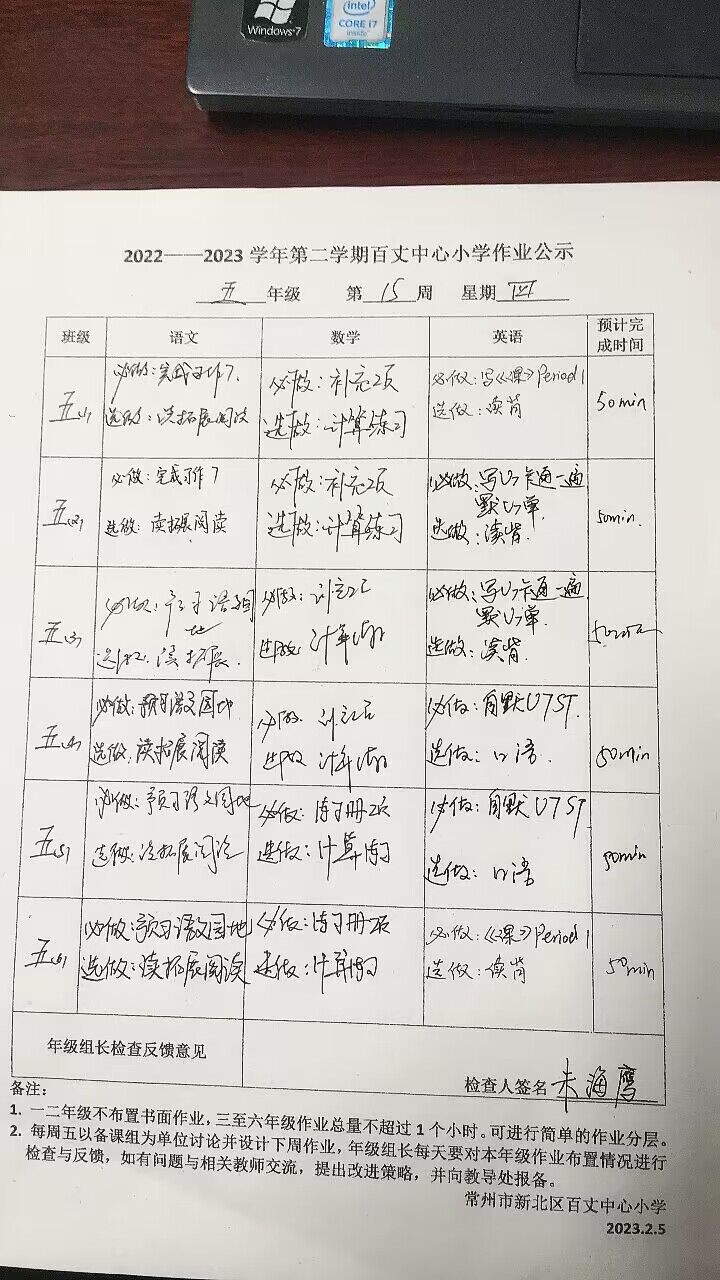 Windows 7
intel
CORE i7
inside
2022——2023 学年第二学期百丈中心小学作业公示
五 年级 第 15 周 星期
班级 语文 数学 英语 预计完成时间
五(1)
必做:完成习作7.
选做:读拓展阅读
必做:补充2页
选做:计算练习
必做:写《课》Period 1
选做:读背
50min
五(2)
必做:完成习作7
选做:读拓展阅读
必做:补充2页
选做:计算练习
必做:写U7卡通一遍
默U7单.
选做:读背.
50min.
五(3)
必做:预习语文园地
选做:读拓展.
必做:补充2页
选做:计算练习
必做:写U7卡通一遍
默U7单.
选做:读背.
50min
五(4)
必做:预习语文园地
选做.读拓展阅读
必做. 补充2页
选做 计算练习
必做:自默U7ST.
选做:口语.
50min
五(5)
必做:预习语文园地
选做:读拓展阅读
必做:练习册2页
选做:计算练习
必做:自默U7ST
选做:口语
50min
五(6)
必做:预习语文园地
选做:读拓展阅读
必做:练习册2页
选做:计算练习
必做:《课》Period 1
选做:读背
50min
年级组长检查反馈意见
检查人签名 朱海鹰
备注:
1. 一二年级不布置书面作业,三至六年级作业总量不超过 1 个小时。可进行简单的作业分层。
2. 每周五以备课组为单位讨论并设计下周作业,年级组长每天要对本年级作业布置情况进行
检查与反馈,如有问题与相关教师交流,提出改进策略,并向教导处报备。
常州市新北区百丈中心小学
2023.2.5